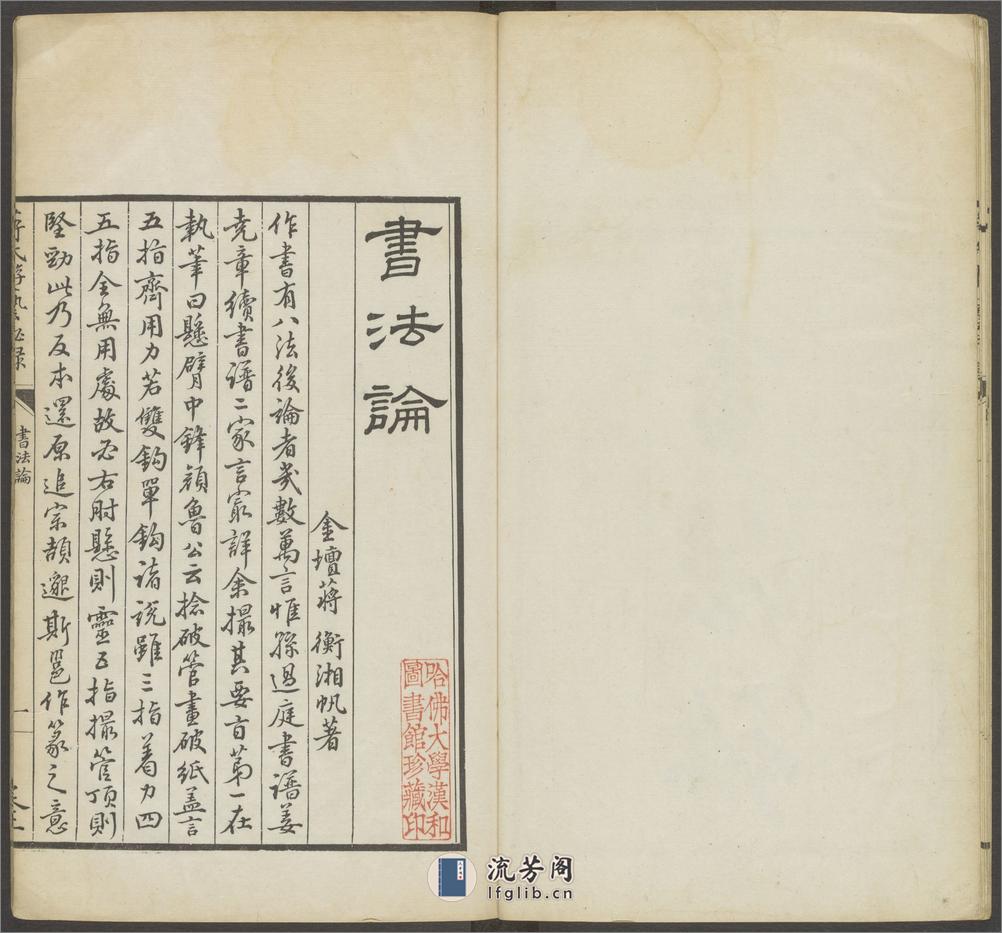 書法論
金壇蔣 衡湘帆著
作書有八法後論者幾數萬言惟孫過庭書譜姜
堯章續書譜二家言最詳余撮其要旨第一在
執筆曰懸臂中鋒顏魯公云捻破管畫破紙蓋言
五指齊用力若雙鈎單鈎諸說雖三指着力四
五指全無用處故必右肘懸則靈五指撮管頂則
堅勁此乃反本還原追宗頡邈斯邕作篆之意
書法論
一
哈佛大學漢和
圖書館珍藏印
流芳阁
lfglib.cn